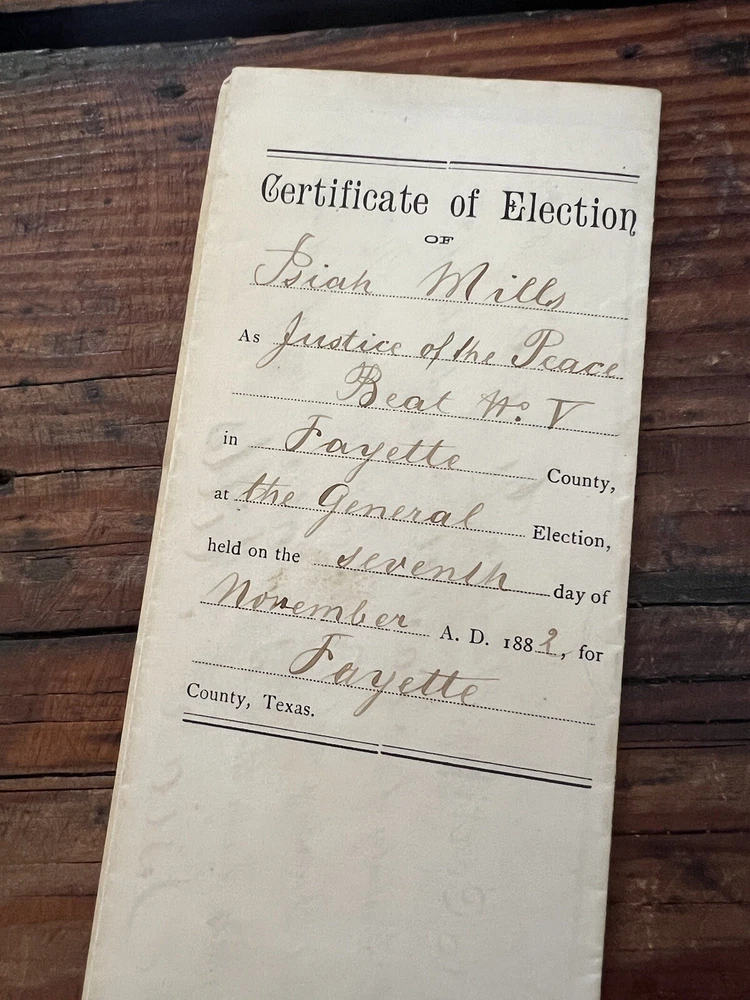 Certificate of Election
OF
Isiah Mills
As Justice of the Peace
Beat No. V
in Fayette County,
at the General Election,
held on the seventh day of
November A. D. 1882, for
Fayette
County, Texas.